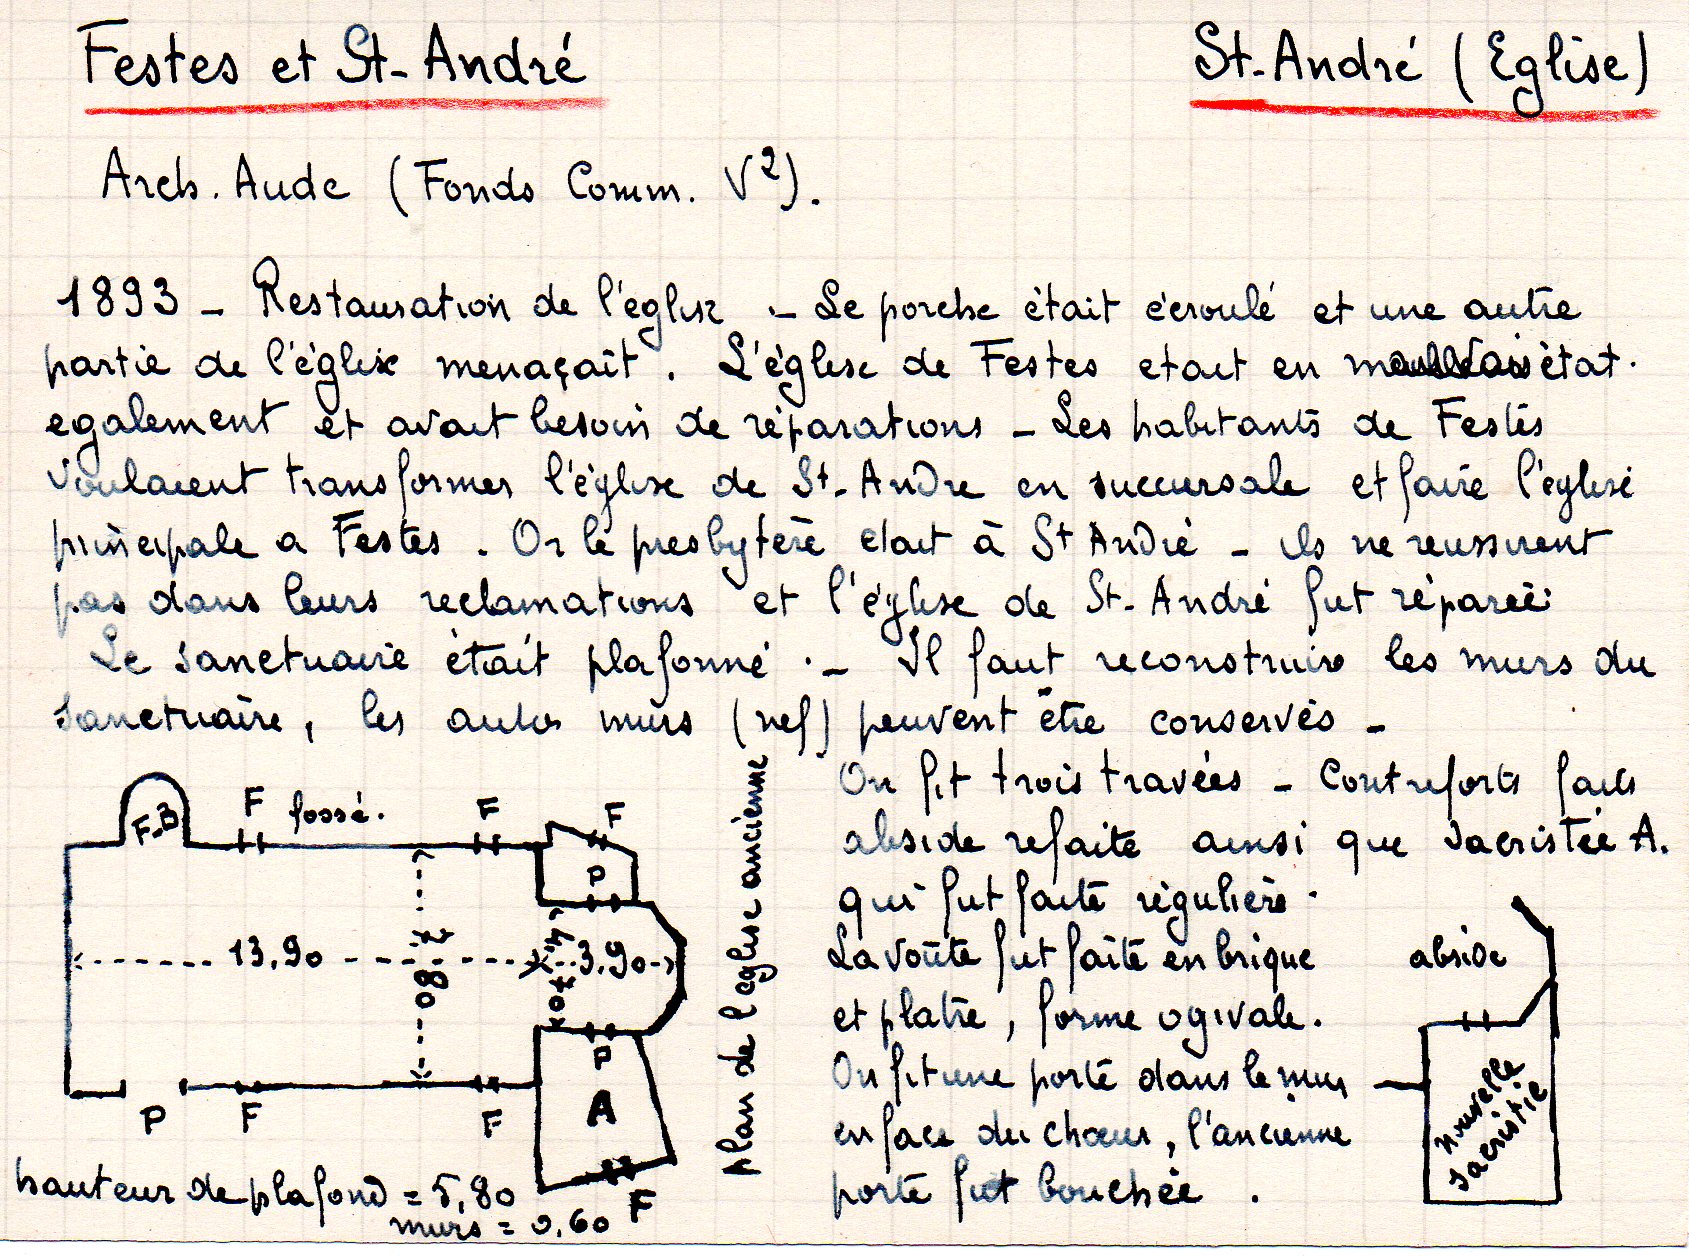 Festes et St-André
St-André (Eglise)
Arch. Aude (Fonds Comm. V²).
1893 - Restauration de l'église - Le porche était écroulé et une autre
partie de l'église menaçait. L'église de Festes etait en mauvais état.
egalement et avait besoin de réparations - Les habitants de Festes
voulaient transformer l'église de St-Andre en succursale et faire l'église
principale a Festes. Or le presbytère etait à St André - ils ne reussirent
pas dans leurs reclamations et l'église de St-André fut réparée.
Le sanctuaire était plafonné. - Il faut reconstruire les murs du
sanctuaire, les autres murs (nef) peuvent être conservés -
On fit trois travées - Contreforts faits
abside refaite ainsi que sacristie A.
qui fut faite régulière.
La voûte fut faite en brique
et platre, forme ogivale.
On fit une porte dans le mur
en face du choeur, l'ancienne
porte fut bouchée.
F-B
F
fossé.
F
F
P
13,90
3,90
P
A
P
F
F
F
hauteur de plafond = 5,80
murs = 0,60
Plan de l'eglise ancienne
abside
nouvelle
sacristie